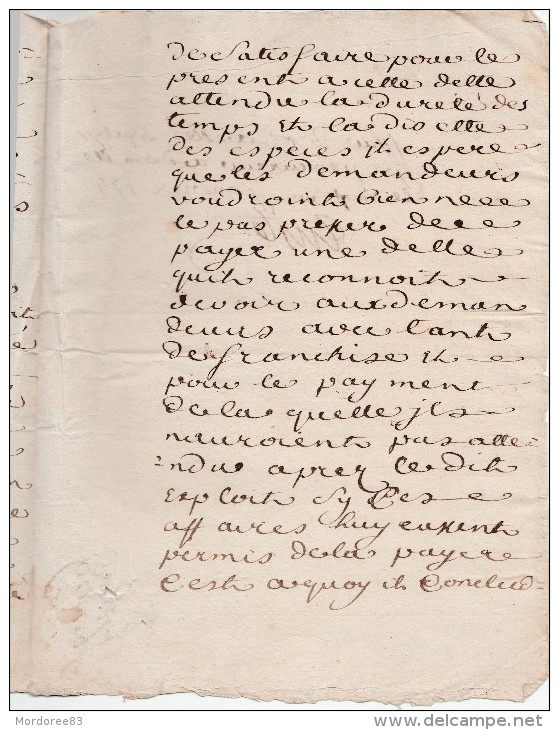 de satisfaire pour le
present a celle delle
attendu la dureté des
temps Et la disette
des especes il espere
que les demandeurs
voudroint bien ne
le pas presser de ce
payer une delle
quil reconnoit
devoir aux deman
deurs avec tant
de franchise Et
pour le payment
de la quelle jls
nauroient pas atte
ndu apres le dit
Exploit sy ses
affaires luy eussent
permis de la payer
C'est a quoy il Conclud
Mordoree83